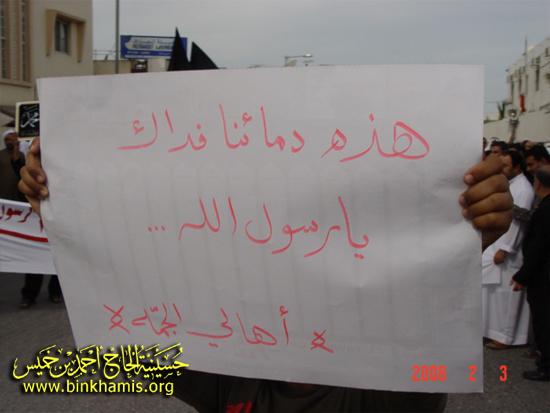 هذه دمائنا فداك
يا رسول الله ...
أهالي الجمّه
محمد
الرسول
حسينية الحاج احمد بن خميس
www.binkhamis.org
2006 2 3